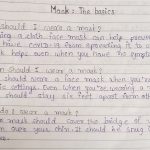 Mask: The basics
should I wear a mask?
ing a cloth face mask can help prevent
have covid-19 from spreading it to
helps even when you have no symptoms
should I wear a mask?
should wear face mask when you're
ic settings. Even when you're wearing a
should stay six feet apart from oth
do I wear a mask?
mask should cover the bridge of
over your chin. It should be snug